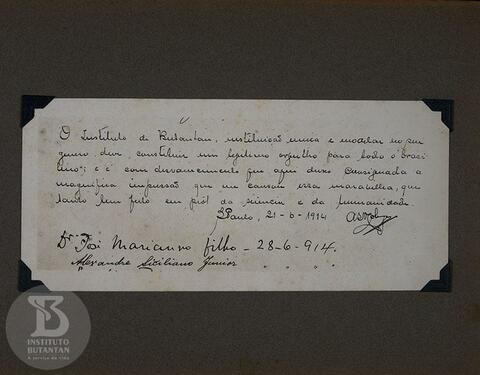 O Instituto de Butantan, instituição unica e modelar no seu
genero, deve constituir um legitimo orgulho para todo o brasi
leiro; e é com desvanecimento que aqui deixo consignada a
magnifica impressão que me causou essa maravilha, que
tanto tem feito em pról da sciencia e da humanidade.
S. Paulo, 21-6-1914
Dr. José Marianno filho - 28-6-914.
Alexandre Siciliano Junior " " "
INSTITUTO
BUTANTAN
A serviço da vida